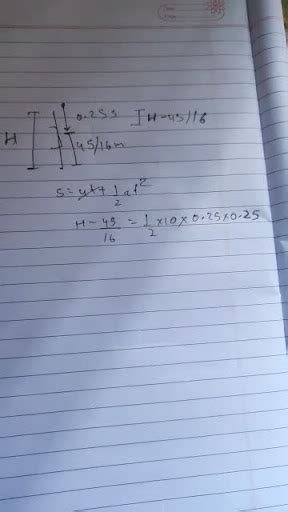 0.25s
H-45/16
H
45/16m
S = ut + 1/2 at²
H - 45/16 = 1/2 × 10 × 0.25 × 0.25